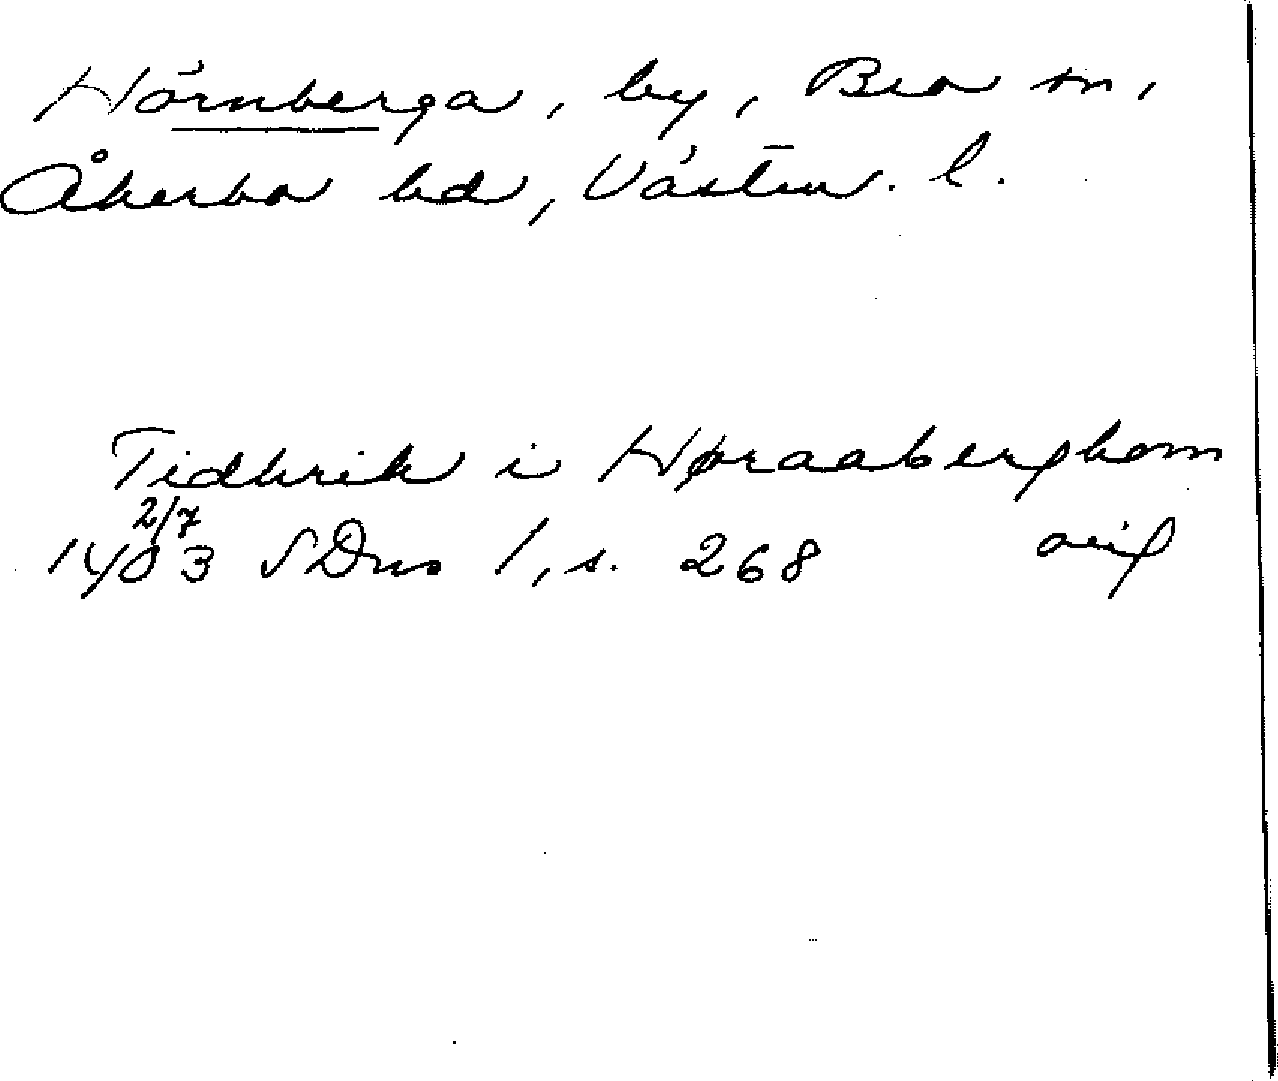 Hörnberga, by, Bro sn,
Åkerbo hd, Västm. l.
Tidhrik i Høraaberghom
2/7
1403 SDns 1, s. 268 orig